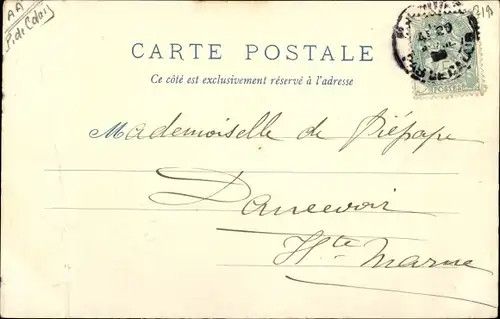 AA
P. de Calais
719
CARTE POSTALE
Ce côté est exclusivement réservé à l'adresse
PAS DE CALAIS
POSTES
Mademoiselle de Piépape
Dancevoir
Hte Marne